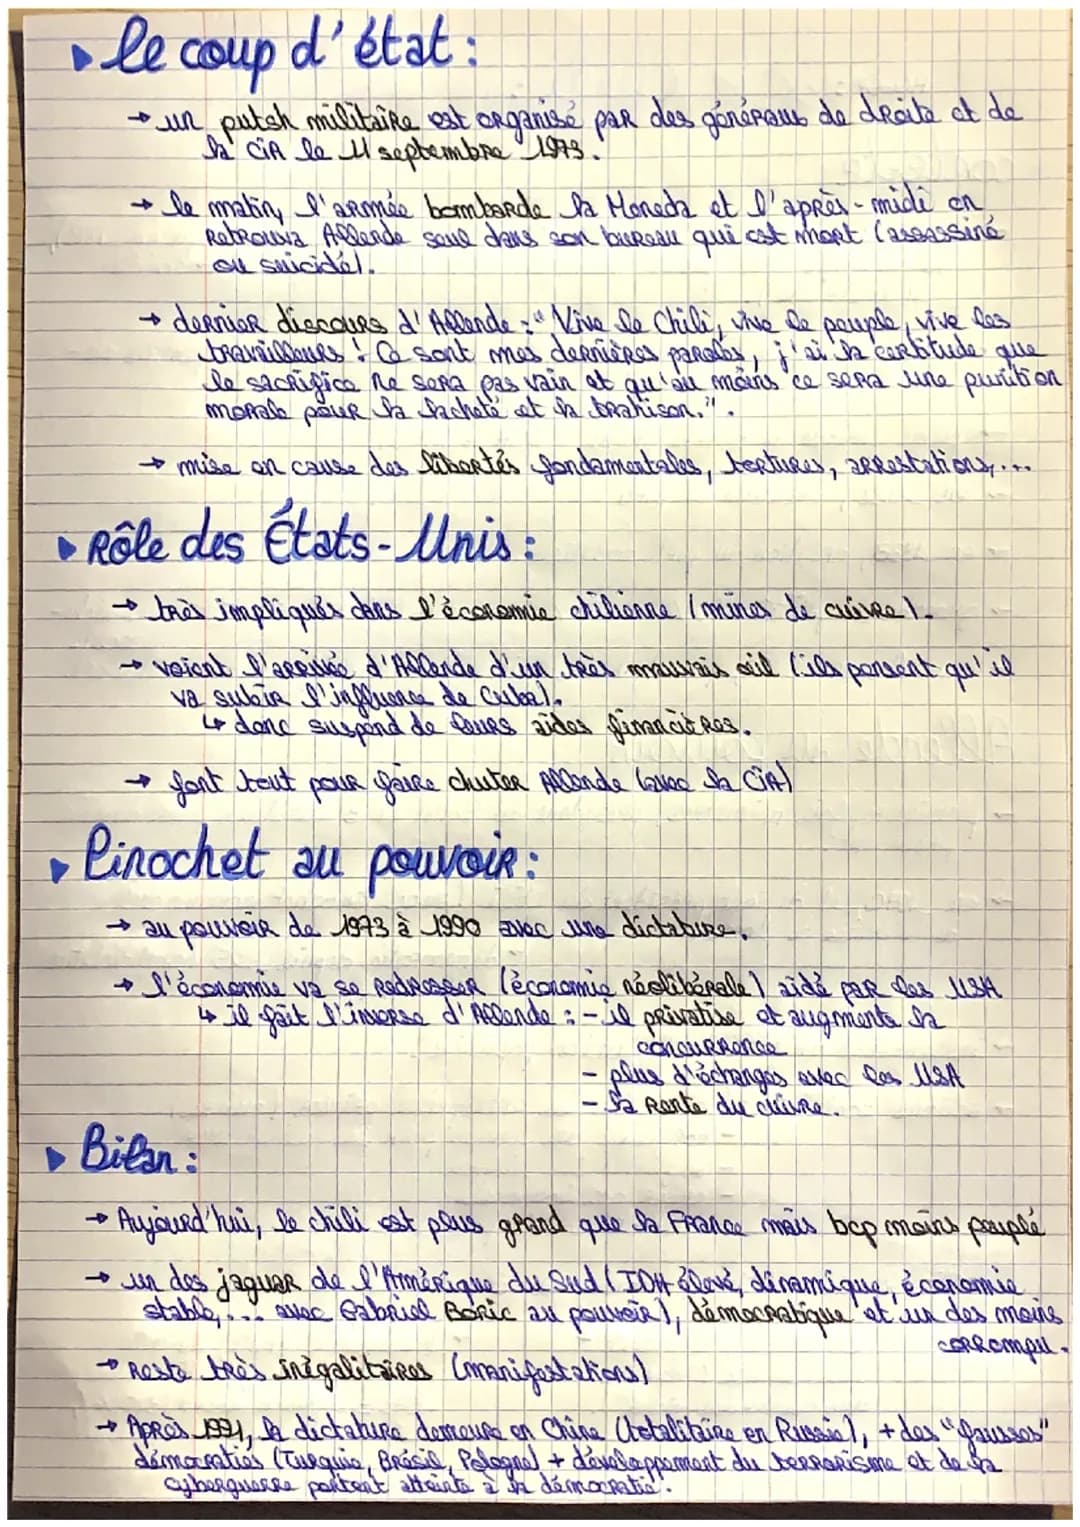 ▸ le coup d'état :
→ un putsh militaire est organisé par des généraux de droite et de
la CIA le 11 septembre 1973.
→ le matin, l'armée bombarde la Moneda et l'après-midi on
retrouva Allende seul dans son bureau qui est mort (assassiné
ou suicidé).
→ dernier discours d'Allende : "Vive le Chili, vive le peuple, vive les
travailleurs ! Ce sont mes dernières paroles, j'ai la certitude que
le sacrifice ne sera pas vain et qu'au moins ce sera une punition
morale pour la lacheté et la trahison.".
→ mise en cause des libertés fondamentales, tortures, arrestations,...
▸ Rôle des États-Unis :
→ très impliqués dans l'économie chilienne (mines de cuivre).
→ voient l'arrivée d'Allende d'un très mauvais œil (ils pensent qu'il
va subir l'influence de Cuba).
↳ donc suspend de leurs aides financières.
→ font tout pour faire chuter Allende (avec la CIA)
▸ Pinochet au pouvoir :
→ au pouvoir de 1973 à 1990 avec une dictature.
→ l'économie va se redresser (économie néolibérale) aidé par les USA
↳ il fait l'inverse d'Allende : - il privatise et augmente la
concurrence
- plus d'échanges avec les USA
- la rente du cuivre.
▸ Bilan :
→ Aujourd'hui, le chili est plus grand que la France mais bcp moins peuplé
→ un des jaguar de l'Amérique du Sud (IDH élevé, dinamique, économie
stable,... avec Gabriel Boric au pouvoir), démocratique et un des moins
corrompu.
→ Reste très inégalitaires (manifestations)
→ Après 1991, la dictature demeure en Chine (totalitaire en Russie), + des "fausses"
démocraties (Turquie, Brésil, Pologne) + développement du terrorisme et de la
cyberguerre portent atteinte à la démocratie.